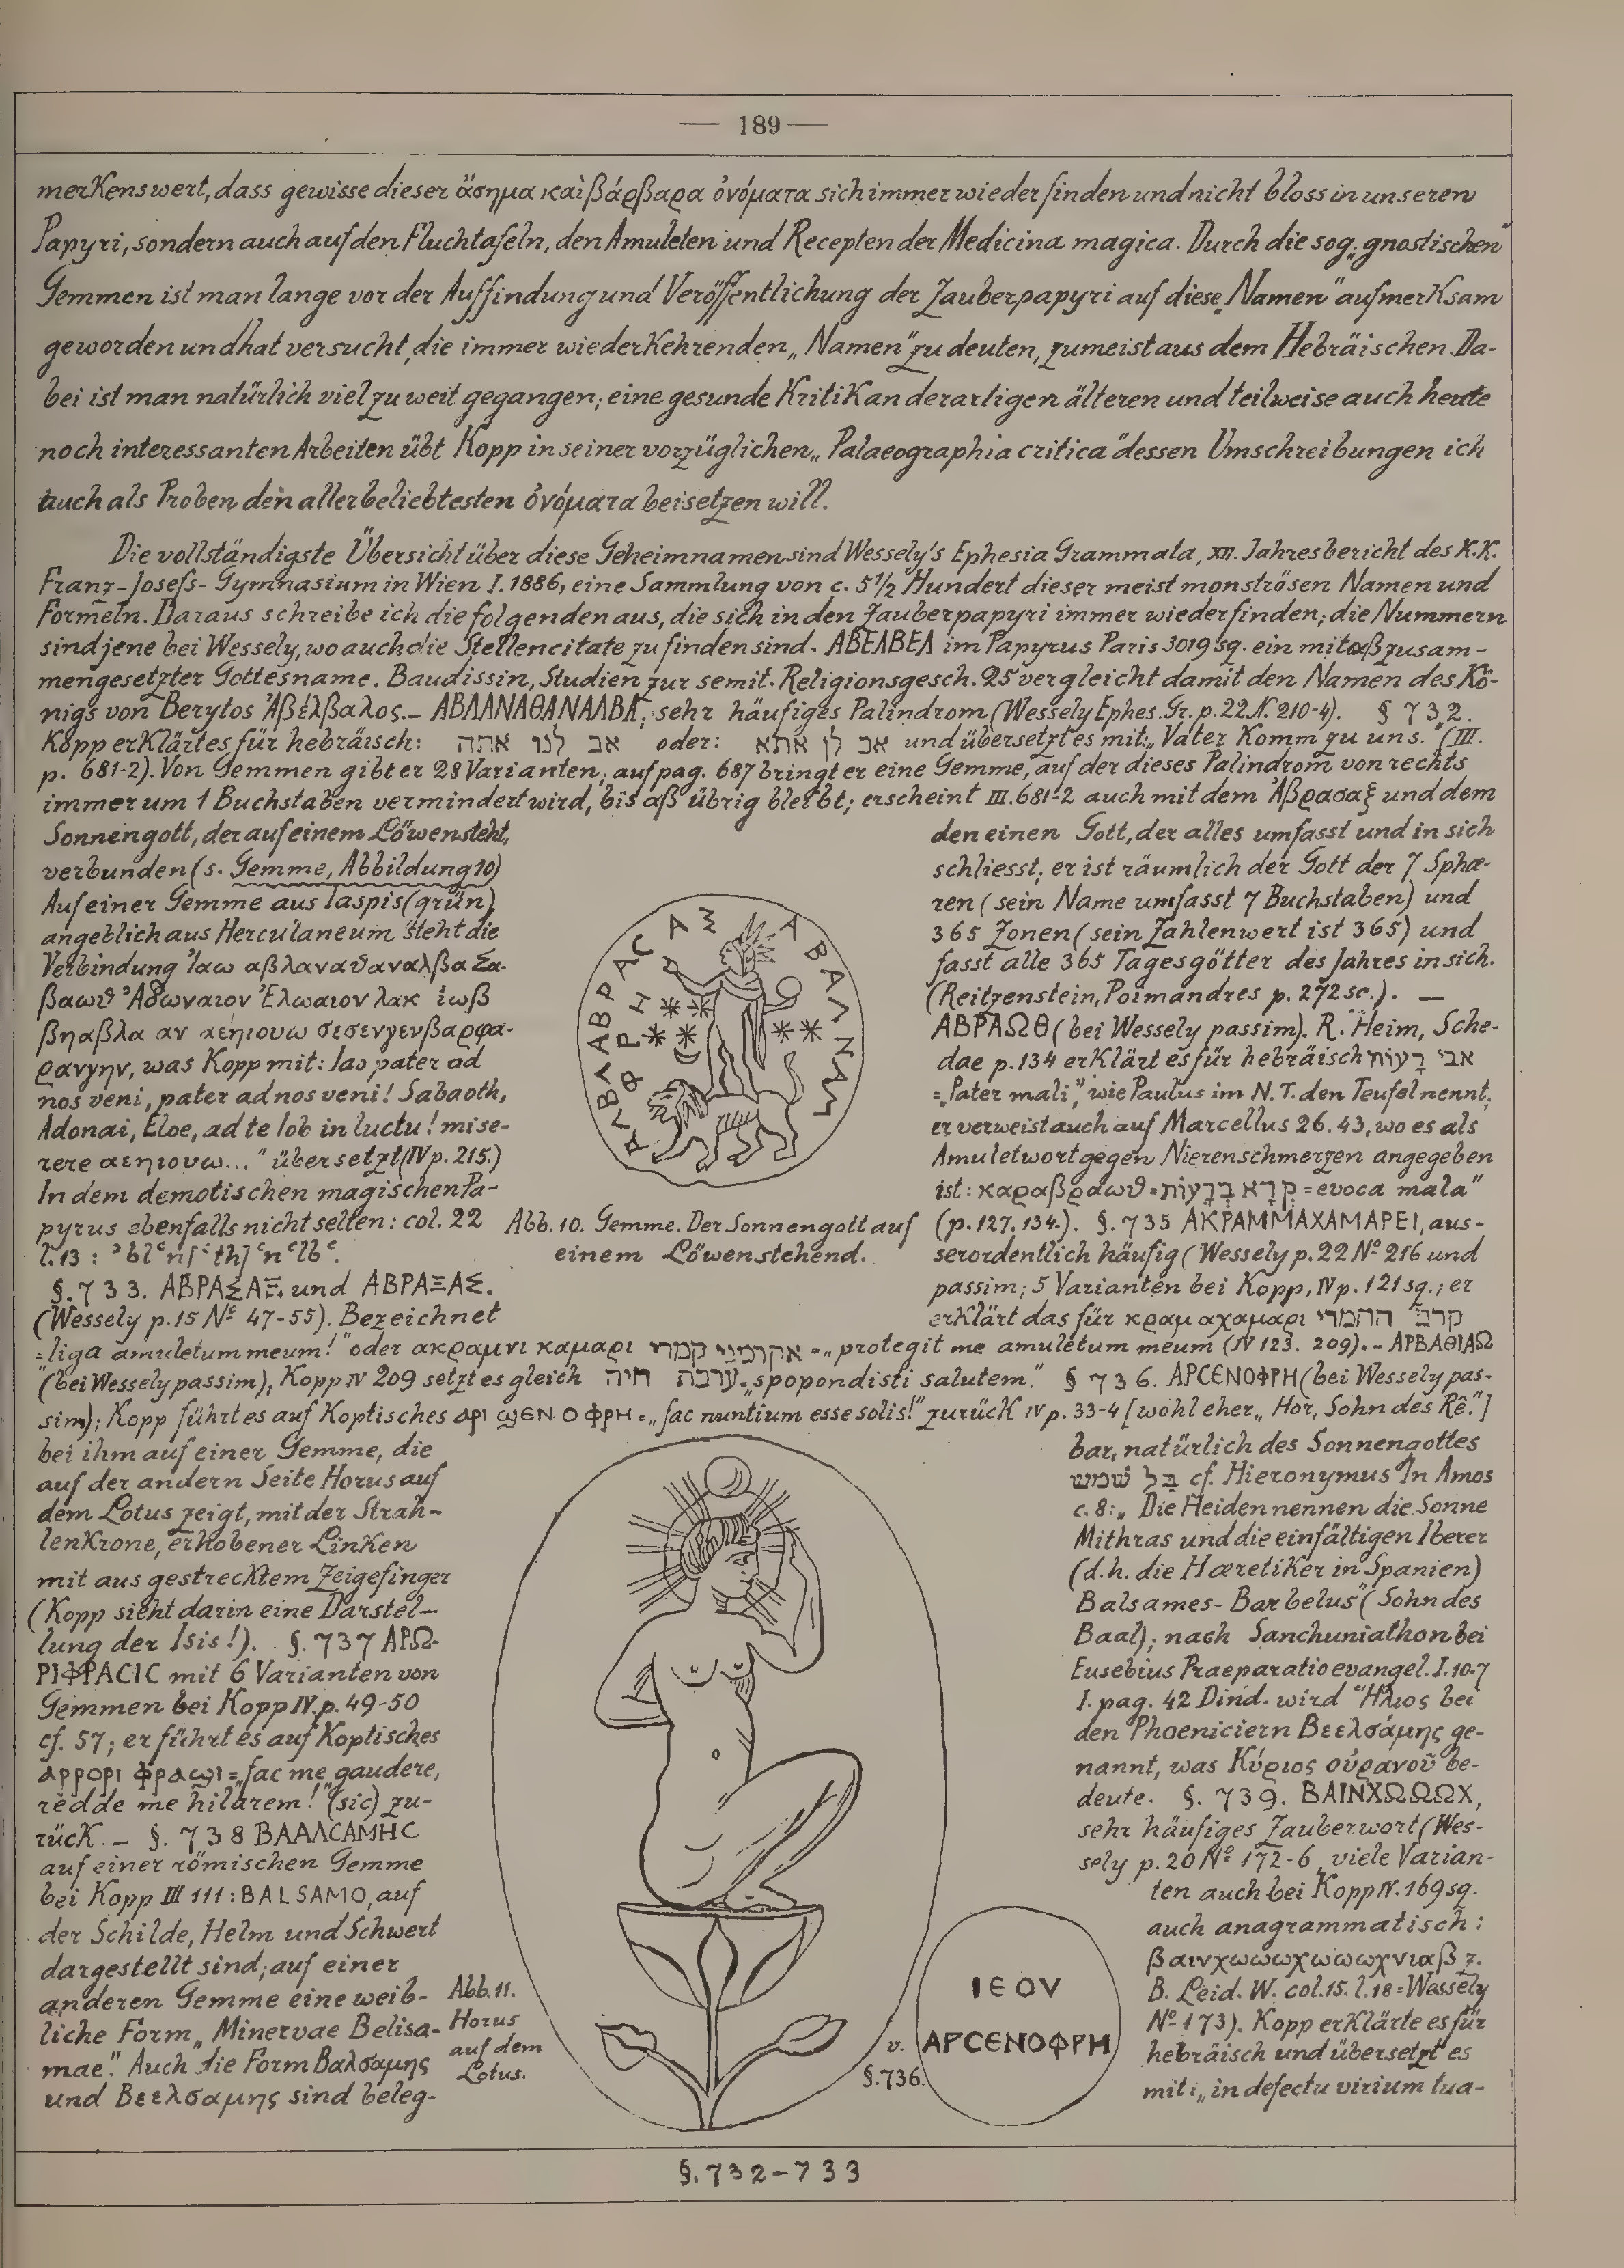 — 189 —
merkenswert, dass gewisse dieser ἄσημα καὶ βάρβαρα ὀνόματα sich immer wieder finden und nicht bloss in unseren
Papyri, sondern auch auf den Fluchtafeln, den Amuleten und Recepten der Medicina magica. Durch die sog. „gnostischen"
Gemmen ist man lange vor der Auffindung und Veröffentlichung der Zauberpapyri auf diese „Namen" aufmerksam
geworden und hat versucht, die immer wiederkehrenden „Namen" zu deuten, zumeist aus dem Hebräischen. Da-
bei ist man natürlich viel zu weit gegangen; eine gesunde Kritik an derartigen älteren und teilweise auch heute
noch interessanten Arbeiten übt Kopp in seiner vorzüglichen „Palaeographia critica" dessen Umschreibungen ich
auch als Proben den allerbeliebtesten ὀνόματα beisetzen will.
Die vollständigste Übersicht über diese Geheimnamen sind Wessely's Ephesia Grammata, XII. Jahresbericht des K.K.
Franz-Josefs-Gymnasium in Wien I. 1886, eine Sammlung von c. 5 1/2 Hundert dieser meist monströsen Namen und
Formeln. Daraus schreibe ich die folgenden aus, die sich in den Zauberpapyri immer wieder finden; die Nummern
sind jene bei Wessely, wo auch die Stellencitate zu finden sind. ΑΒΕΛΒΕΛ im Papyrus Paris 3019 sq. ein mit αβ zusam-
mengesetzter Gottesname. Baudissin, Studien zur semit. Religionsgesch. 25 vergleicht damit den Namen des Kö-
nigs von Berytos Ἀβέλβαλος. – ΑΒΛΑΝΑΘΑΝΑΛΒΑ, sehr häufiges Palindrom (Wessely Ephes. Gr. p. 22 N. 210-4). § 732.
Kopp erklärt es für hebräisch: אב לנו אתה oder: אב לן אתא und übersetzt es mit: „Vater komm zu uns." (III.
p. 681-2). Von Gemmen gibt er 28 Varianten; auf pag. 687 bringt er eine Gemme, auf der dieses Palindrom von rechts
immer um 1 Buchstaben vermindert wird, bis αβ übrig bleibt; erscheint III. 681-2 auch mit dem Ἀβρασαξ und dem
Sonnengott, der auf einem Löwen steht,
verbunden (s. Gemme, Abbildung 10)
Auf einer Gemme aus Iaspis (grün),
angeblich aus Herculaneum steht die
Verbindung Ἰαω αβλαναθαναλβα Σα-
βαωθ Ἀδωναιον Ἐλωαιον λακ ἰωβ
βηαβλα αν αεηιουω σεσενγενβαρφα-
ρανγην, was Kopp mit: Iao pater ad
nos veni, pater ad nos veni! Sabaoth,
Adonai, Eloe, ad te Iob in luctu! mise-
rere αεηιουω..." übersetzt (IV p. 215.)
In dem demotischen magischen Pa-
pyrus ebenfalls nicht selten: col. 22
§. 733. ΑΒΡΑΣΑΞ und ΑΒΡΑΞΑΣ.
(Wessely p. 15 No 47-55). Bezeichnet
ΑΒΛΝΑΝ
Abb. 10. Gemme. Der Sonnengott auf
einem Löwen stehend.
den einen Gott, der alles umfasst und in sich
schliesst; er ist räumlich der Gott der 7 Sphæ-
ren (sein Name umfasst 7 Buchstaben) und
365 Zonen (sein Zahlenwert ist 365) und
fasst alle 365 Tagesgötter des Jahres in sich.
(Reitzenstein, Poimandres p. 272 sc.). —
ΑΒΡΑΩΘ (bei Wessely passim). R. Heim, Sche-
dae p. 134 erklärt es für hebräisch אבי רָעוֹת
= „Pater mali", wie Paulus im N.T. den Teufel nennt;
er verweist auch auf Marcellus 26. 43, wo es als
Amuletwort gegen Nierenschmerzen angegeben
ist: καραβραωθ = קְרָא בְּרָעוֹת = evoca mala"
(p. 127. 134.). §. 735 ΑΚΡΑΜΜΑΧΑΜΑΡΕΙ, aus-
serordentlich häufig (Wessely p. 22 No 216 und
passim; 5 Varianten bei Kopp, IV p. 121 sq.; er
erklärt das für κραμ αχαμαρι
= liga amuletum meum!" oder ακραμνι καμαρι אקרמני קמרי = „protegit me amuletum meum (IV 123. 209). – ΑΡΒΑΘΙΑΩ
(bei Wessely passim); Kopp IV 209 setzt es gleich ערבה חיה = „spopondisti salutem." § 736. ΑΡϹΕΝΟΦΡΗ (bei Wessely pas-
sim); Kopp führt es auf Koptisches ⲁⲣⲓ ϣⲉⲛ ⲟ ⲫⲣⲏ = „fac nuntium esse solis!" zurück IV p. 33-4 [wohl eher „Hor, Sohn des Rê."]
bei ihm auf einer Gemme, die
auf der andern Seite Horus auf
dem Lotus zeigt, mit der Strah-
lenkrone, erhobener Linken
mit ausgestrecktem Zeigefinger
(Kopp sieht darin eine Darstel-
lung der Isis!). §. 737 ΑΡΩ-
ΡΙΦΡΑϹΙϹ mit 6 Varianten von
Gemmen bei Kopp IV. p. 49-50
cf. 57; er führt es auf Koptisches
ⲁⲣⲣⲟⲣⲓ ⲫⲣⲁϣⲓ = „fac me gaudere,
redde me hilarem!" (sic) zu-
rück. – §. 738 ΒΑΑΛϹΑΜΗϹ
auf einer römischen Gemme
bei Kopp III 111: BALSAMO, auf
der Schilde, Helm und Schwert
dargestellt sind; auf einer
anderen Gemme eine weib-
liche Form „Minervae Belisa-
mae." Auch die Form Βαλσαμης
und Βεελσαμης sind beleg-
Abb. 11.
Horus
auf dem
Lotus.
v.
§. 736.
ΙΕΟΥ
ΑΡϹΕΝΟΦΡΗ
bar, natürlich des Sonnengottes
בַּל שׁמש cf. Hieronymus In Amos
c. 8: „Die Heiden nennen die Sonne
Mithras und die einfältigen Iberer
(d.h. die Hæretiker in Spanien)
Balsames-Barbelus" (Sohn des
Baal); nach Sanchuniathon bei
Eusebius Praeparatio evangel. I. 10.7
I. pag. 42 Dind. wird Ἥλιος bei
den Phoeniciern Βεελσάμης ge-
nannt, was Κύριος οὐρανοῦ be-
deute. §. 739. ΒΑΙΝΧΩΩΩΧ,
sehr häufiges Zauberwort (Wes-
sely p. 20 No 172-6, viele Varian-
ten auch bei Kopp IV. 169 sq.
auch anagrammatisch:
βαινχωωωχωωωχνιαβ z.
B. Leid. W. col. 15. l. 18 = Wessely
No 173). Kopp erklärte es für
hebräisch und übersetzt es
mit: „in defectu virium tua-
§. 732-733